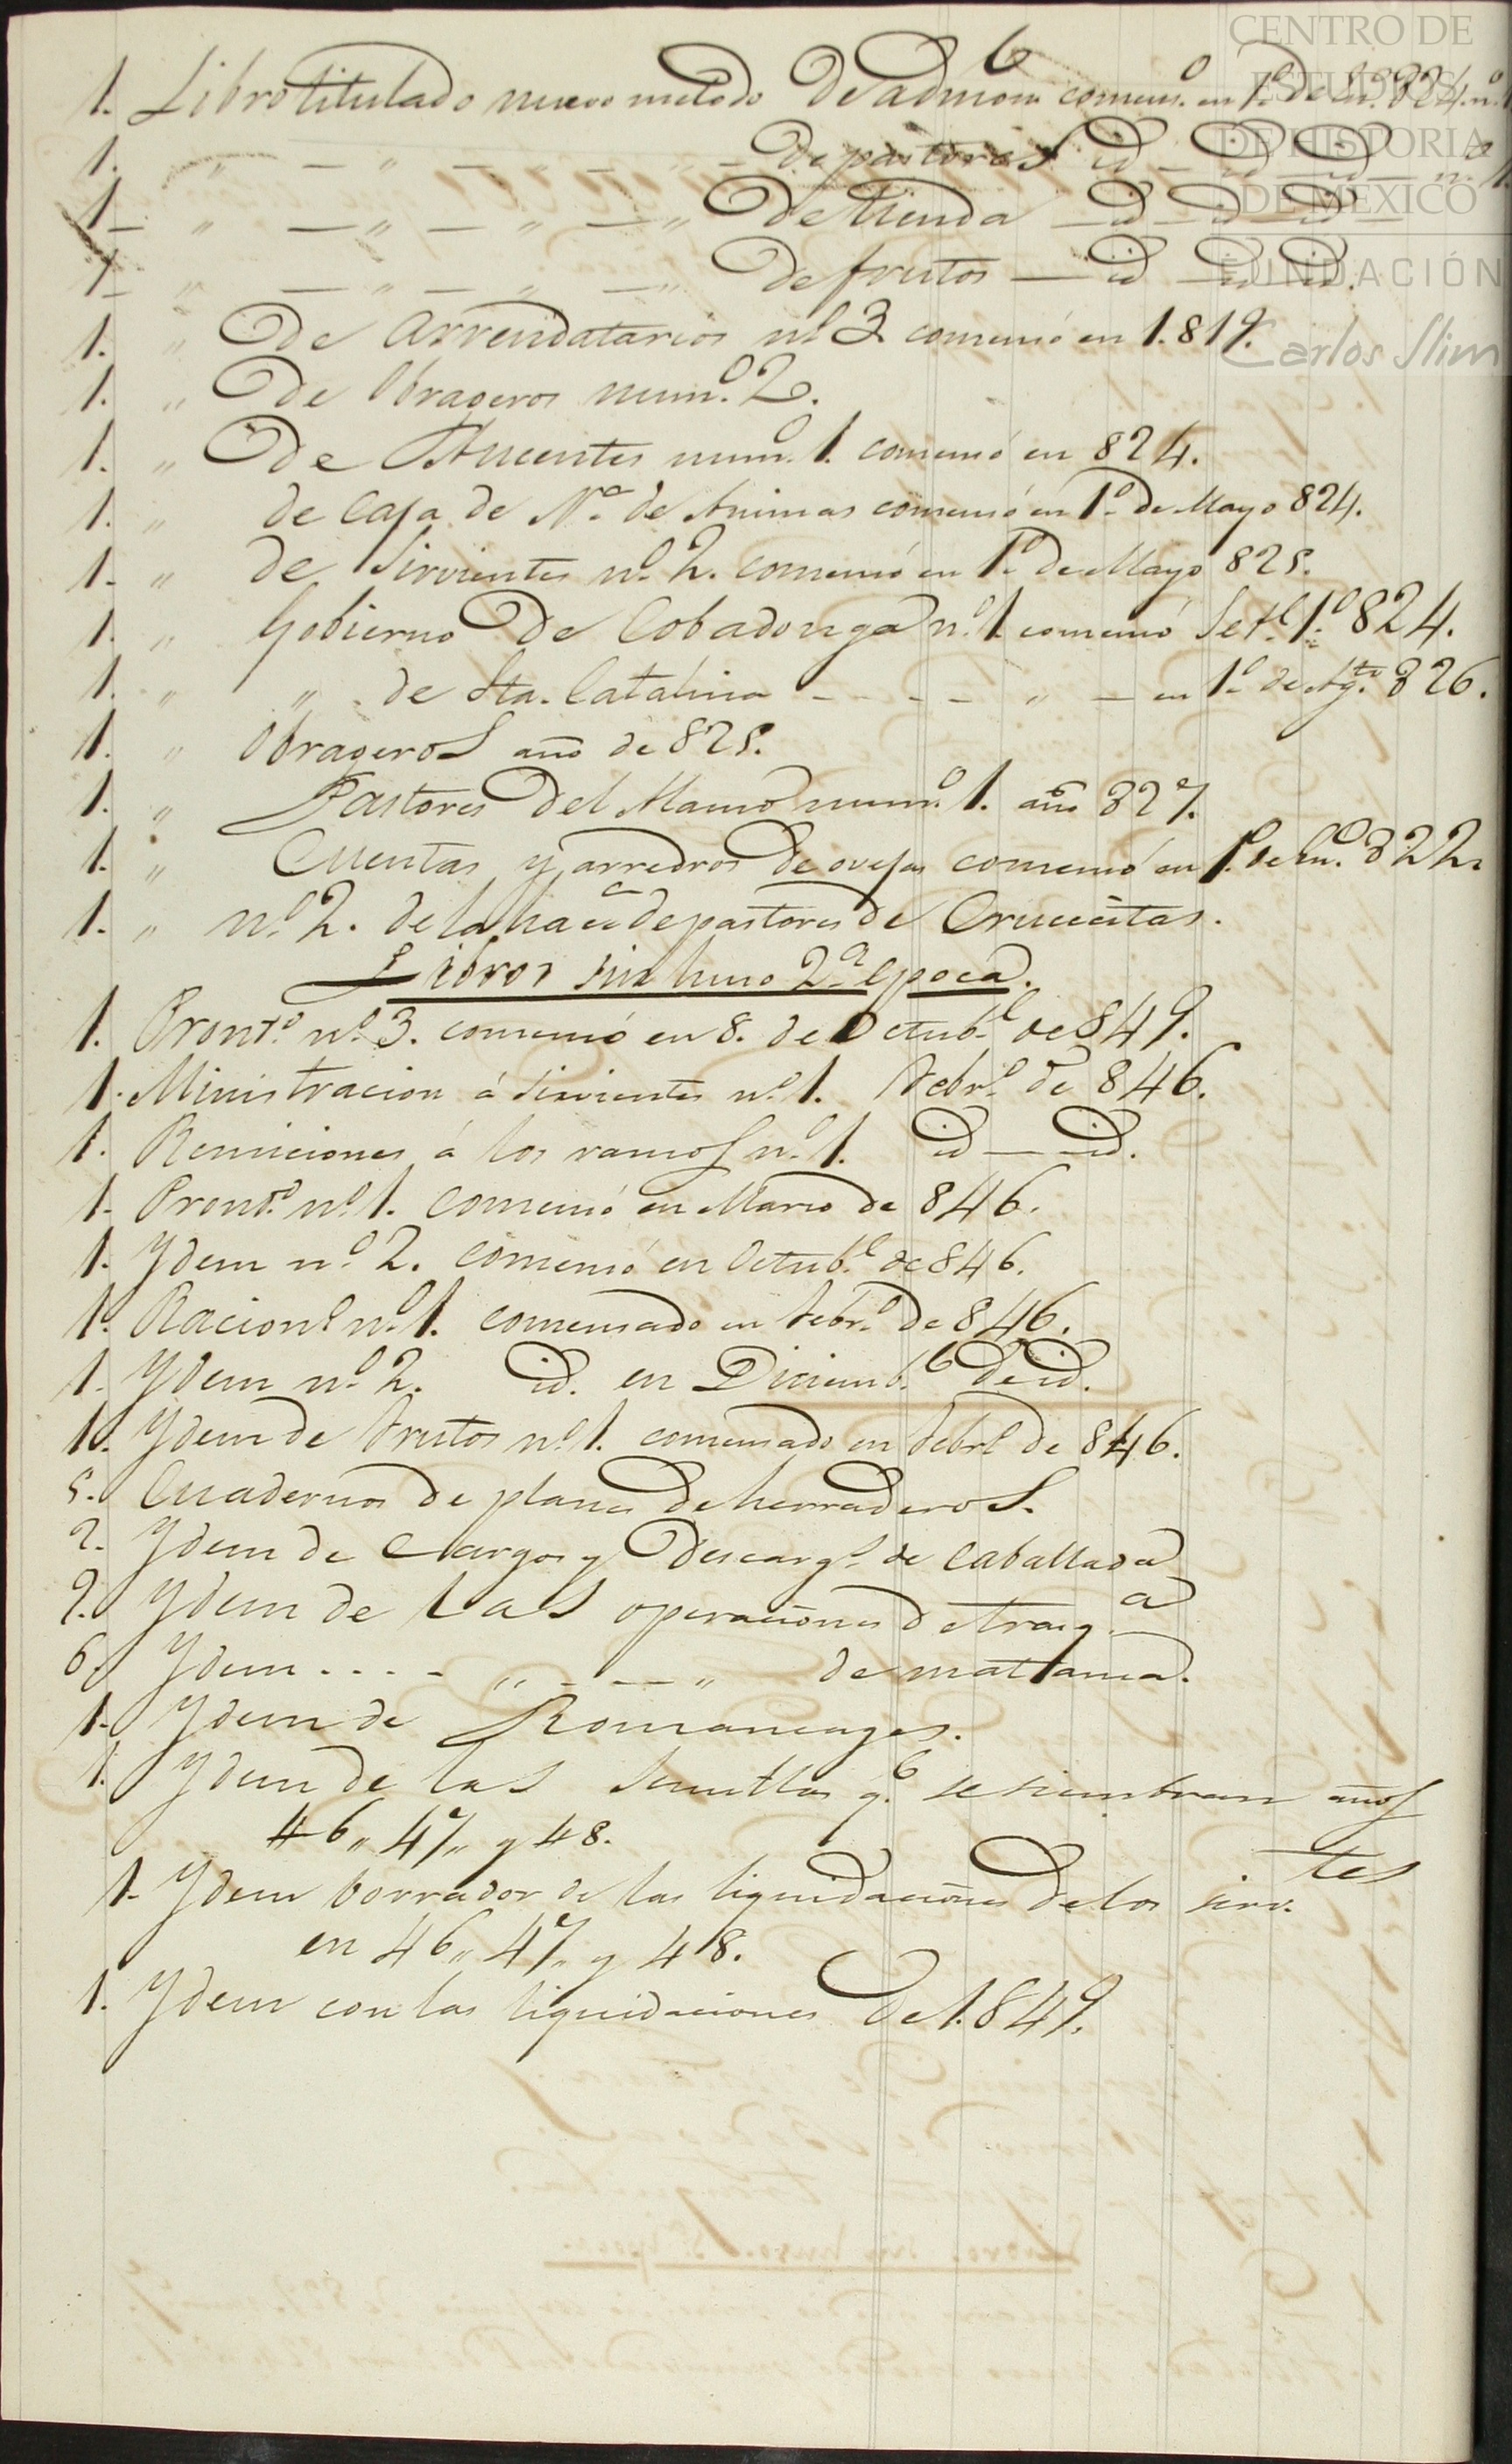 CENTRO DE
ESTUDIOS
DE HISTORIA
DE MEXICO
FUNDACIÓN
Carlos Slim
6
1. Libro titulado nuevo metodo de admon. comenzó en 1º de En.º 824. n.º 1
1. " — " — " — de pastores id — id — id — n.º
1 — " — " — " — " de tienda — id — id — id —
1 — " — " — " — " de frutos — id — id — id.
1. " de Arrendatarios nº 3 comenzó en 1.819.
1. " de Obrageros num.º 2.
1. " de Ausentes num.º 1. comenzó en 824.
1. " de Casa de N.ª de Animas comenzó en 1º de Mayo 824.
1. " de Sirvientes nº 2. comenzó en 1º de Mayo 825.
1. " Gobierno de Cobadonga nº 1 comenzó Set.e 1º 824.
1. " " de Sta. Catalina - - - - " — en 1º de Agto. 826.
1. " Obrageros año de 825.
1. " Pastores del Mamo num.º 1. año 827.
1. " Cuentas y arredros de ovejas comenzó en 1º de En.º 822.
1. " nº 2. de la hacda de pastores de Crucitas.
Libros sin huso 2ª epoca.
1. Pront.º nº 3. comenzó en 8. de Octub.e de 849.
1. Ministracion á Sirvientes nº 1. Febr.º de 846.
1. Remiciones á los ramos nº 1. id — id.
1. Pront.º nº 1. comenzó en Marzo de 846.
1. Ydem nº 2. comenzó en Octub.e de 846.
1. Racion.s nº 1. comenzado en Febr.º de 846.
1. Ydem nº 2. id. en Diciemb.e de id.
1. Ydem de frutos nº 1. comenzado en Febr.º de 846.
5. Cuadernos de planes de herraderos.
2. Ydem de Cargos y Descarg.s de Caballada
2. Ydem de las operaciones de trasq.a
6. Ydem . . . - " — — " de matanza.
1. Ydem de Romaneages.
1. Ydem de las semillas q.e se siembran años
46,, 47,, y 48.
1. Ydem borrador de las liquidaciones de los sirv.tes
en 46,, 47,, y 48.
1. Ydem con las liquidaciones de 1.849.